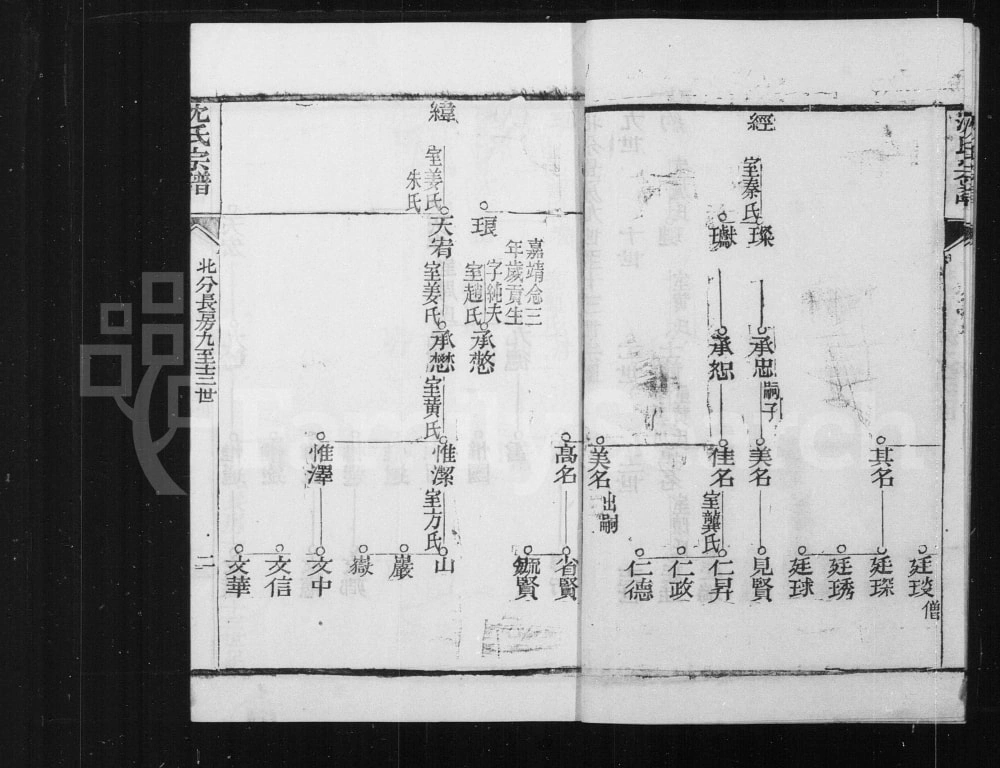 經
室秦氏
璨
瓛
承忠
嗣子
承恕
其名
美名
佳名
室龔氏
美名
出嗣
高名
廷琰
僧
廷琛
廷琇
廷球
見賢
仁昇
仁政
仁德
省賢
毓賢
沈氏宗譜
緯
室姜氏
朱氏
琅
嘉靖念三
年歲貢生
字純夫
室趙氏
承愗
天宥
室姜氏
承懋
室黄氏
惟潔
室方氏
惟澤
山
巖
嶽
文中
文信
文華
沈氏宗譜
北分長房九至十三世
二